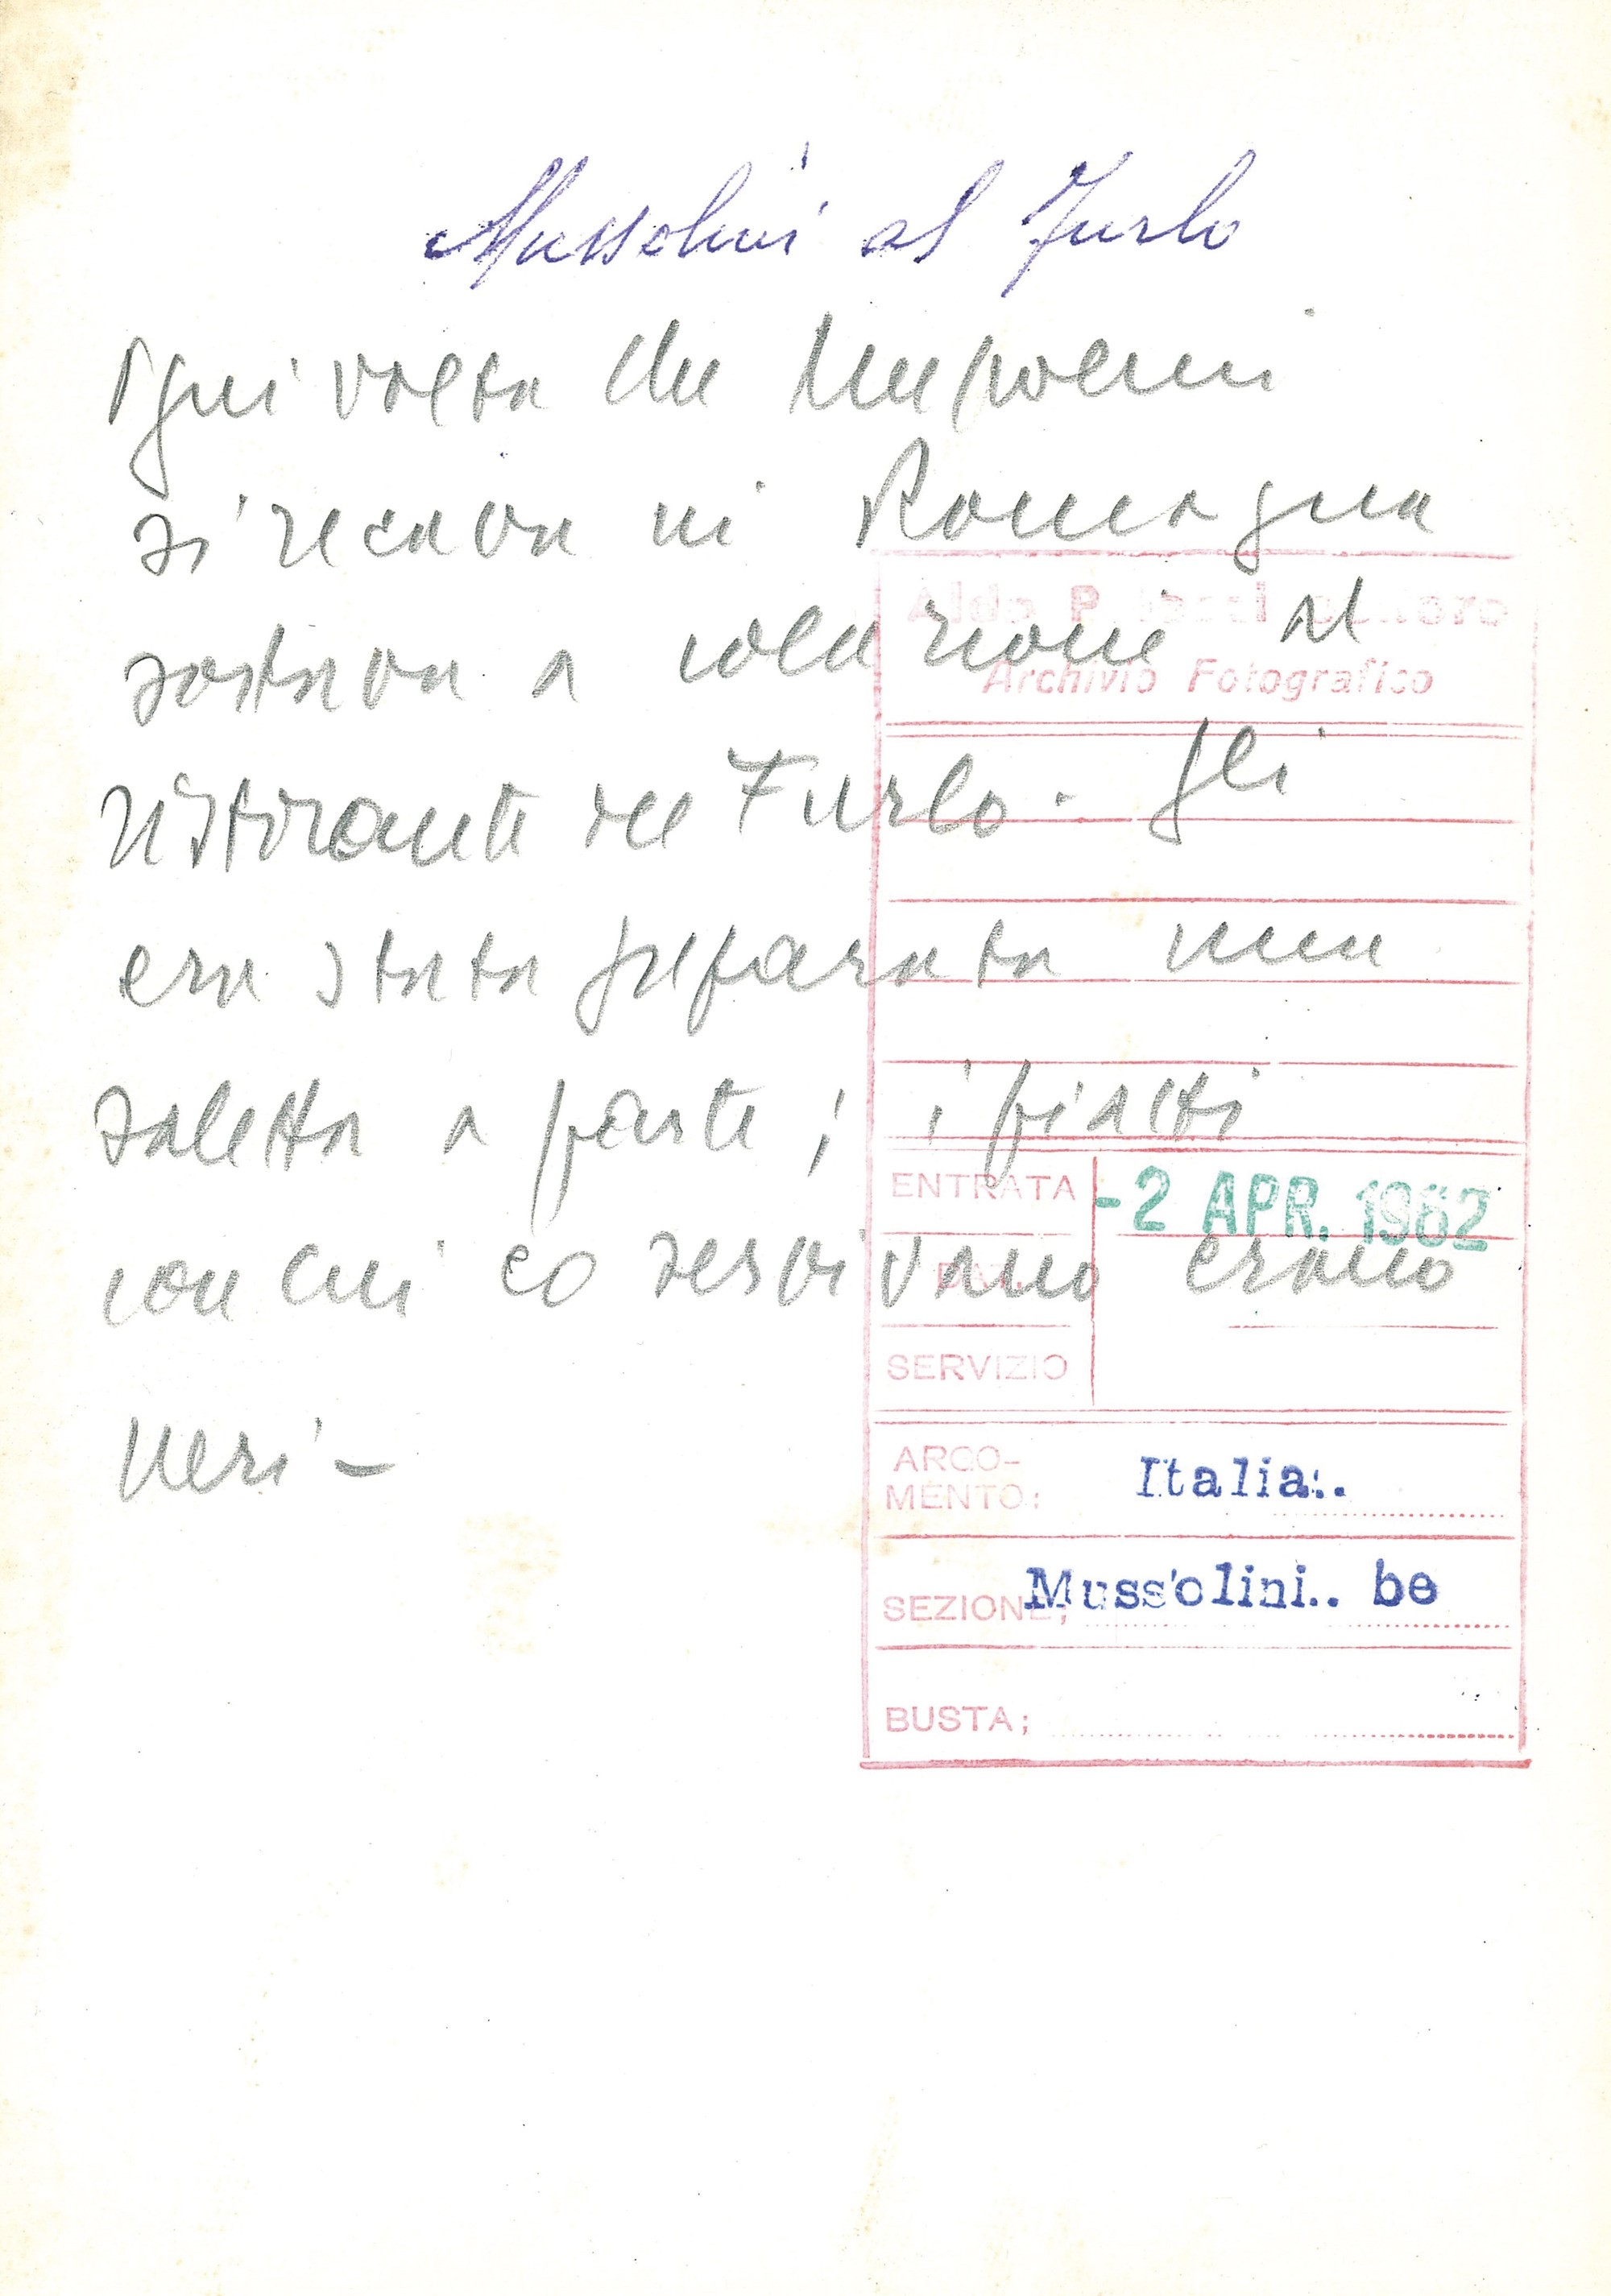 Mussolini al Furlo
Ogni volta che Mussolini
si recava in Romagna
sostava a colazione al
ristorante del Furlo. Gli
era stata preparata una
saletta a parte; i piatti
con cui lo servivano erano
neri -
Aldo P
Archivio Fotografico
ENTRATA -2 APR. 1962
SERVIZIO
ARGO-
MENTO: Italia:.
SEZIONE; Mussolini.. be
BUSTA;